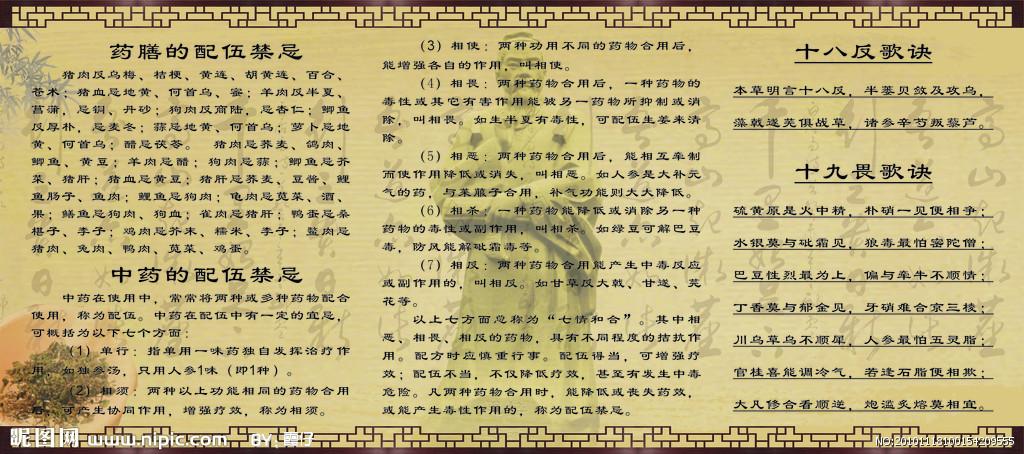 药膳的配伍禁忌
猪肉反乌梅、桔梗、黄连、胡黄连、百合、
苍术；猪血忌地黄、何首乌、蜜；羊肉反半夏、
菖蒲，忌铜、丹砂；狗肉反商陆，忌杏仁；鲫鱼
反厚朴，忌麦冬；蒜忌地黄、何首乌；萝卜忌地
黄、何首乌；醋忌茯苓。 猪肉忌荞麦、鸽肉、
鲫鱼、黄豆；羊肉忌醋；狗肉忌蒜；鲫鱼忌芥
菜、猪肝；猪血忌黄豆；猪肝忌荞麦、豆酱、鲤
鱼肠子、鱼肉；鲤鱼忌狗肉；龟肉忌苋菜、酒、
果；鳝鱼忌狗肉、狗血；雀肉忌猪肝；鸭蛋忌桑
椹子、李子；鸡肉忌芥末、糯米、李子；鳖肉忌
猪肉、兔肉、鸭肉、苋菜、鸡蛋。
中药的配伍禁忌
中药在使用中，常常将两种或多种药物配合
使用，称为配伍。中药在配伍中有一定的宜忌，
可概括为以下七个方面：
（1）单行：指单用一味药独自发挥治疗作
用。如独参汤，只用人参1味（即1种）。
（2）相须：两种以上功能相同的药物合用
后，可产生协同作用，增强疗效，称为相须。
（3）相使：两种功用不同的药物合用后，
能增强各自的作用，叫相使。
（4）相畏：两种药物合用后，一种药物的
毒性或其它有害作用能被另一药物所抑制或消
除，叫相畏。如生半夏有毒性，可配伍生姜来消
除。
（5）相恶：两种药物合用后，能相互牵制
而使作用降低或消失，叫相恶。如人参是大补元
气的药，与莱菔子合用，补气功能则大大降低。
（6）相杀：一种药物能降低或消除另一种
药物的毒性或副作用，叫相杀。如绿豆可解巴豆
毒，防风能解砒霜毒等。
（7）相反：两种药物合用能产生中毒反应
或副作用的，叫相反。如甘草反大戟、甘遂、芫
花等。
以上七方面总称为“七情和合”。其中相
恶、相畏、相反的药物，具有不同程度的拮抗作
用。配方时应慎重行事。配伍得当，可增强疗
效；配伍不当，不仅降低疗效，甚至有发生中毒
危险。凡两种药物合用时，能降低或丧失药效，
或能产生毒性作用的，称为配伍禁忌。
十八反歌诀
本草明言十八反，半蒌贝蔹及攻乌，
藻戟遂芫俱战草，诸参辛芍叛藜芦。
十九畏歌诀
硫黄原是火中精，朴硝一见便相争；
水银莫与砒霜见，狼毒最怕密陀僧；
巴豆性烈最为上，偏与牵牛不顺情；
丁香莫与郁金见，牙硝难合京三棱；
川乌草乌不顺犀，人参最怕五灵脂；
官桂喜能调冷气，若逢石脂便相欺；
大凡修合看顺逆，炮滥炙熔莫相宜。
昵图网 www.nipic.com BY:霞仔